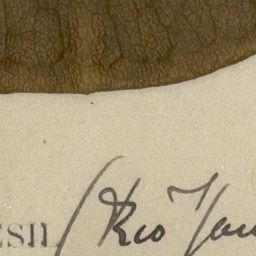 ESIL (Rio Jan